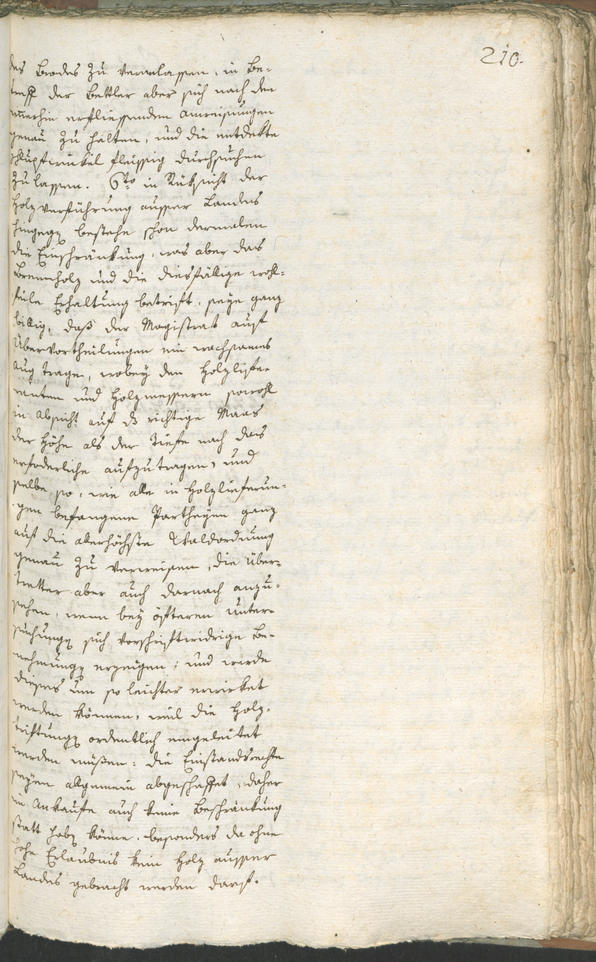 210.
des Brodes zu veranlassen, in Be-
treff der Bettler aber sich nach den
immerhin erfliessenden Anweisungen
genau zu halten, und die entdekte
Schlupfwinkel fleissig durchsuchen
zu lassen. 6to in Rüksicht der
Holzverführung ausser Landes
hingegen bestehe schon dermalen
die Einschränkung, was aber das
Brennholz und die diesfällige wohl-
feile Erhaltung betrift, seye ganz
billig, daß der Magistrat auf
Übervortheilungen ein wachsames
Aug trage, wobey den Holzliefe-
ranten und Holzmessern sowohl
in Absicht auf d. richtige Maas
der Höhe als der Tiefe nach das
erforderliche aufzutragen, und
selbe so, wie alle in Holzlieferun-
gen befangene Partheyen ganz
auf die allerhöchste Waldordnung
genau zu verweisen, die Über-
tretter aber auch darnach anzu-
sehen, wenn bey öfteren Unter-
suchungen sich vorschriftwidrige Be-
nehmungen erzeigen; und werde
dieses um so leichter erwirket
werden können, weil die Holz-
triftungen ordentlich eingeleitet
werden müßen: die Einstandsrechte
seyen allgemein abgeschaffet, daher
im Ankaufe auch keine Beschränkung
statt haben könne, besonders da ohne
hohe Erlaubnis kein Holz ausser
Landes gebracht werden darf.